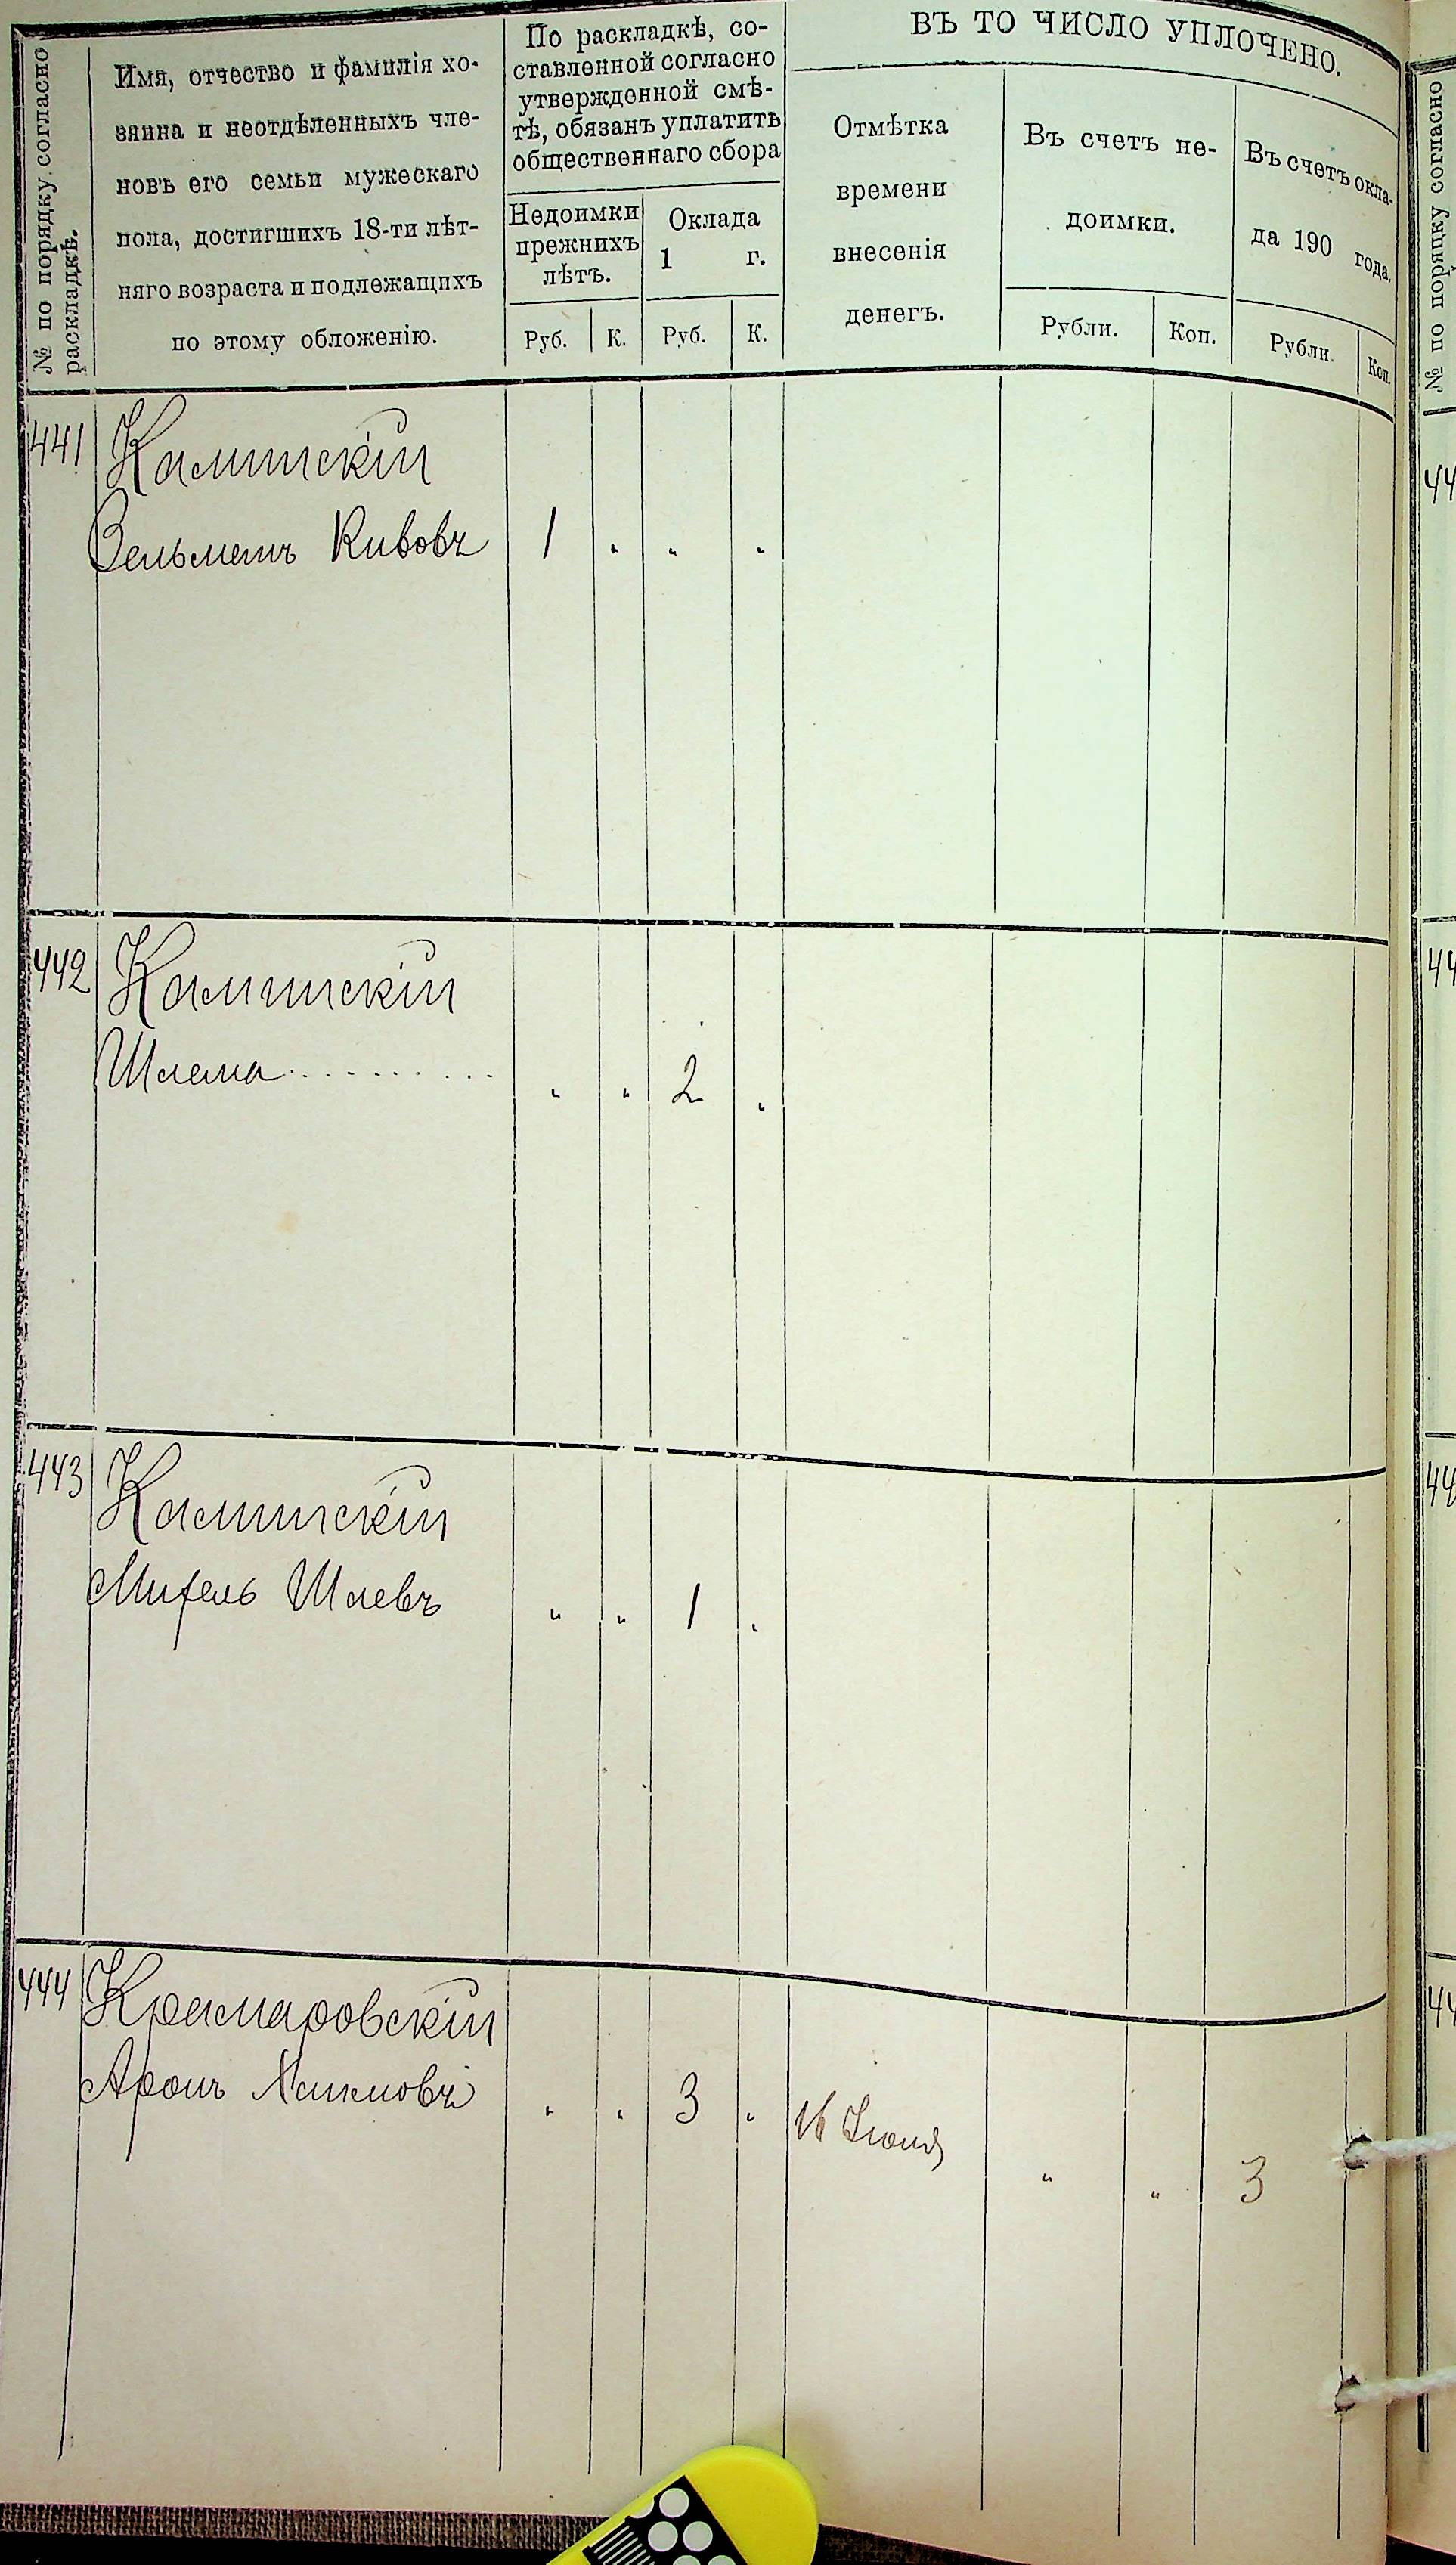 № по порядку согласно
раскладкѣ.
Имя, отчество и фамилія хо-
зяина и неотдѣленныхъ чле-
новъ его семьи мужескаго
пола, достигшихъ 18-ти лѣт-
няго возраста и подлежащихъ
по этому обложенію.
По раскладкѣ, со-
ставленной согласно
утвержденной смѣ-
тѣ, обязанъ уплатить
общественнаго сбора
Недоимки
прежнихъ
лѣтъ.
Оклада
1 г.
Руб. К. Руб. К.
ВЪ ТО ЧИСЛО УПЛОЧЕНО.
Отмѣтка
времени
внесенія
денегъ.
Въ счетъ не-
доимки.
Рубли. Коп.
Въ счетъ окла-
да 190 года.
Рубли. Коп.
441 Каминскій
Зельманъ Кивовъ 1 „ „ „
442 Каминскій
Шлема.......... „ „ 2 „
443 Каминскій
Михель Шаевъ „ „ 1 „
444 Крамаровскій
Аронъ Хаимовъ „ „ 3 „ 16 Іюня „ „ 3
№ по порядку согласно
44
44
44
44